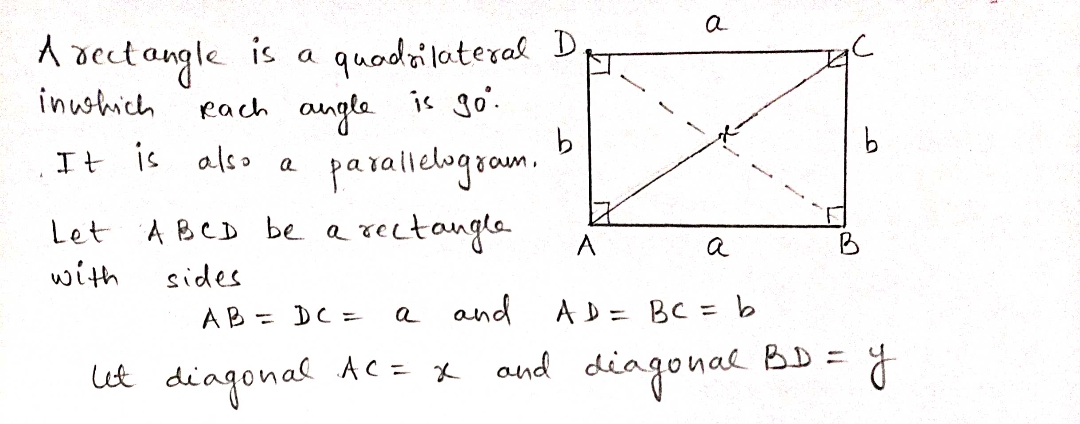 A rectangle is a quadrilateral
inwhich each angle is 90°.
It is also a parallelogram.
Let ABCD be a rectangle
with sides
AB = DC = a and AD = BC = b
let diagonal AC = x and diagonal BD = y
a
D
C
b
x
b
A
a
B